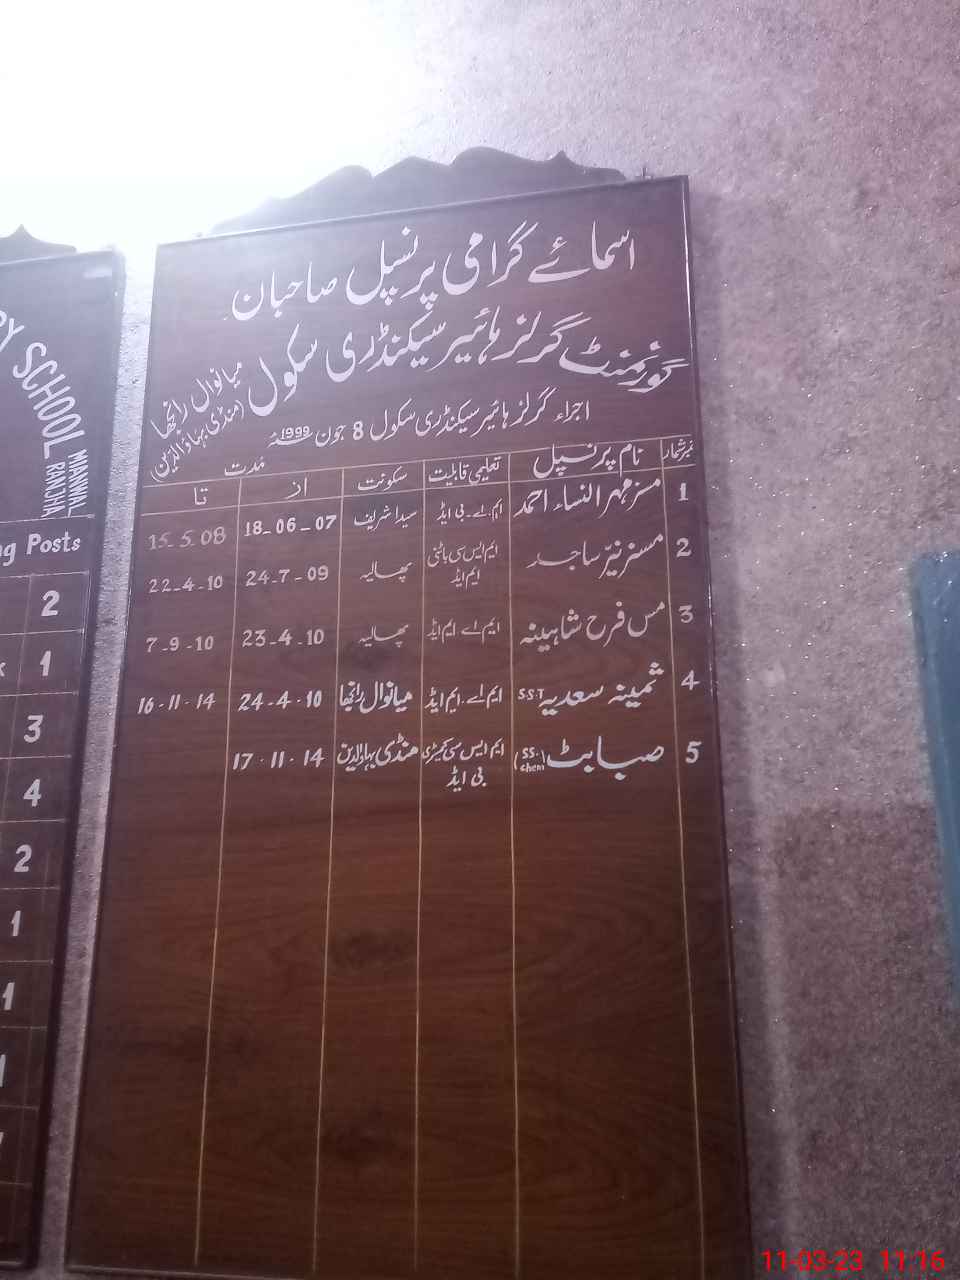 اسمائے گرامی پرنسپل صاحبان
گورنمنٹ گرلز ہائیر سیکنڈری سکول میانوال رانجھا (منڈی بہاؤالدین)
اجراء گرلز ہائیر سیکنڈری سکول 8 جون 1999ء
نمبر شمار نام پرنسپل تعلیمی قابلیت سکونت مدت
از تا
1 مسز مہر النساء احمد ایم.اے.بی ایڈ سیدا شریف 18-06-07 15-5-08
2 مسز نیّر ساجد ایم ایس سی باٹنی ایم ایڈ پھالیہ 24-7-09 22-4-10
3 مس فرح شاہینہ ایم اے ایم ایڈ پھالیہ 23-4-10 7-9-10
4 ثمینہ سعدیہ S.S.T ایم اے.ایم ایڈ میانوال رانجھا 24-4-10 16-11-14
5 صبا بٹ (SS. chem) ایم ایس سی کیمسٹری بی ایڈ منڈی بہاؤالدین 17-11-14
SCHOOL MIANWAL RANJHA
Posts
2
1
3
4
2
1
1
11-03-23 11:16